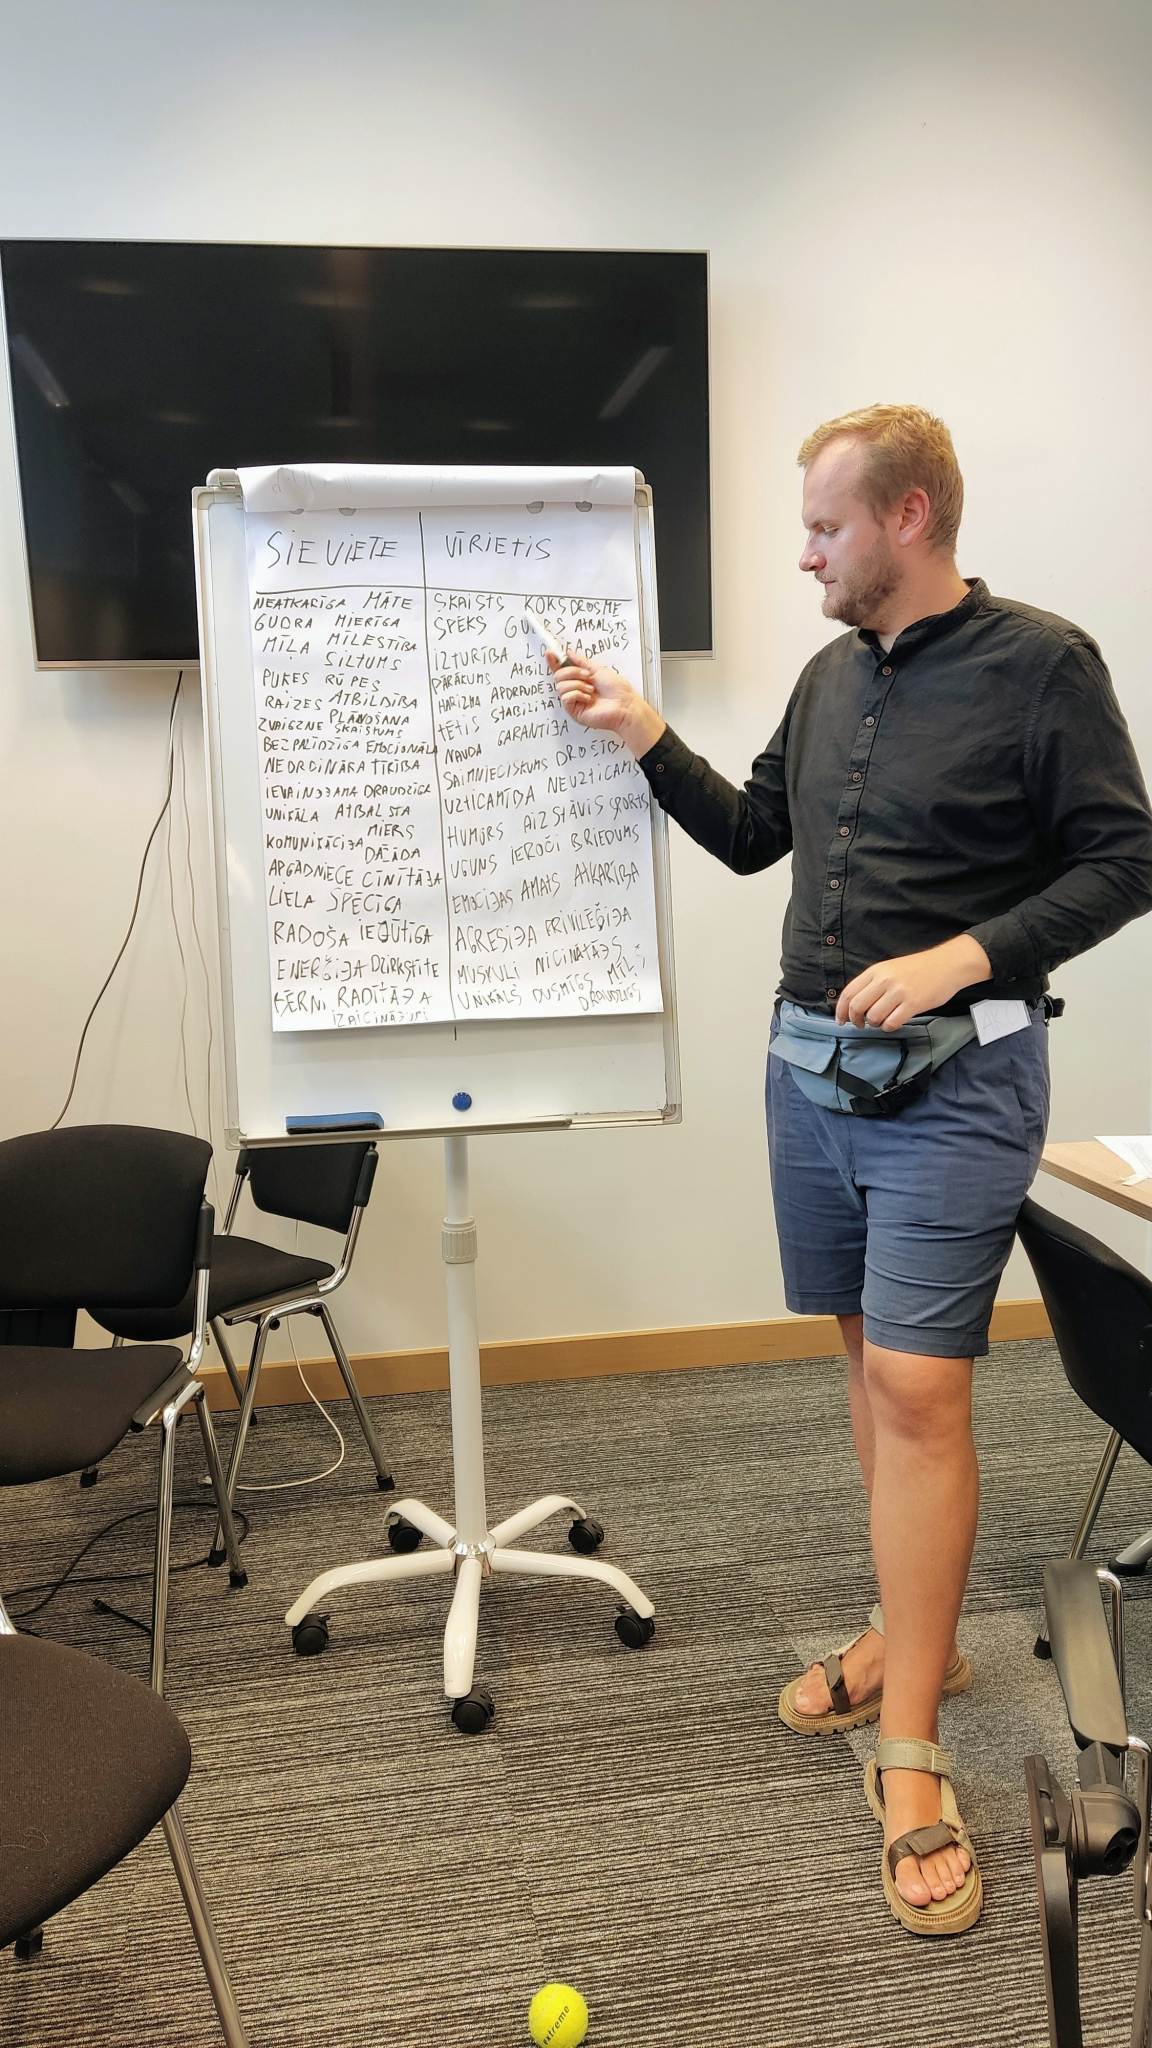 SIEVIETE
NEATKARĪGA MĀTE
GUDRA MIERĪGA
MĪĻA MĪLESTĪBA
SILTUMS
PUĶES RŪPES
RAIZES ATBILDĪBA
ZVAIGZNE PLĀNOŠANA
SKAISTUMS
BEZPALĪDZĪGA EMOCIONĀLA
NEORDINĀRA TĪRĪBA
IEVAINOJAMA DRAUDZĪGA
UNIKĀLA ATBALSTA
KOMUNIKĀCIJA MIERS
DAŽĀDA
APGĀDNIECE CĪNĪTĀJA
LIELA SPĒCĪGA
RADOŠA IEJŪTĪGA
ENERĢIJA DZIRKSTĪTE
BĒRNI RADĪTĀJA
IZAICINĀJUMI
VĪRIETIS
SKAISTS KOKS DROSME
SPĒKS ATBALSTS
IZTURĪBA DRAUGS
PĀRĀKUMS
HARIZMA
TĒTIS
NAUDA GARANTIJA
SAIMNIECISKUMS
UZTICAMĪBA NEUZTICAMS
HUMORS AIZSTĀVIS SPORTS
UGUNS IEROČI BRIEDUMS
EMOCIJAS AMATS ATKARĪBA
AGRESIJA PRIVILĒĢIJA
MUSKUĻI NICINĀTĀJS
UNIKĀLS DUSMĪGS MĪĻŠ
DRAUDZĪGS
extreme